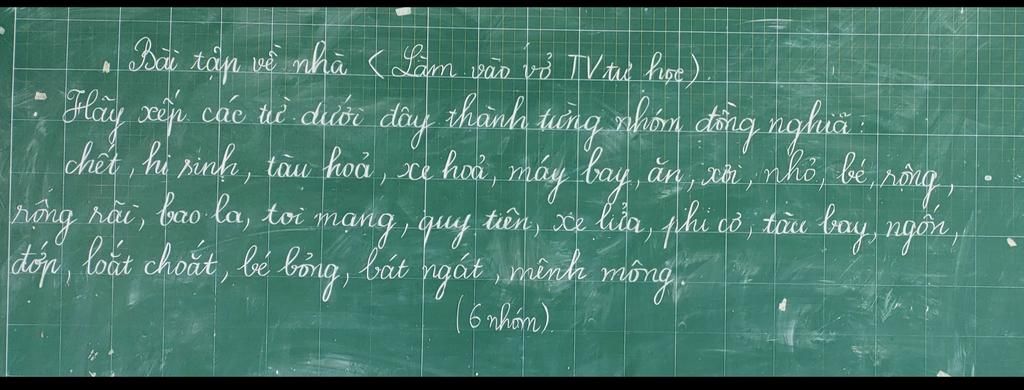 Bài tập về nhà (Làm vào vở TV tự học).
Hãy xếp các từ dưới đây thành từng nhóm đồng nghĩa:
chết, hi sinh, tàu hoả, xe hoả, máy bay, ăn, xơi, nhỏ, bé, rộng,
rộng rãi, bao la, toi mạng, quy tiên, xe lửa, phi cơ, tàu bay, ngốn,
đớp, loắt choắt, bé bỏng, bát ngát, mênh mông.
(6 nhóm).